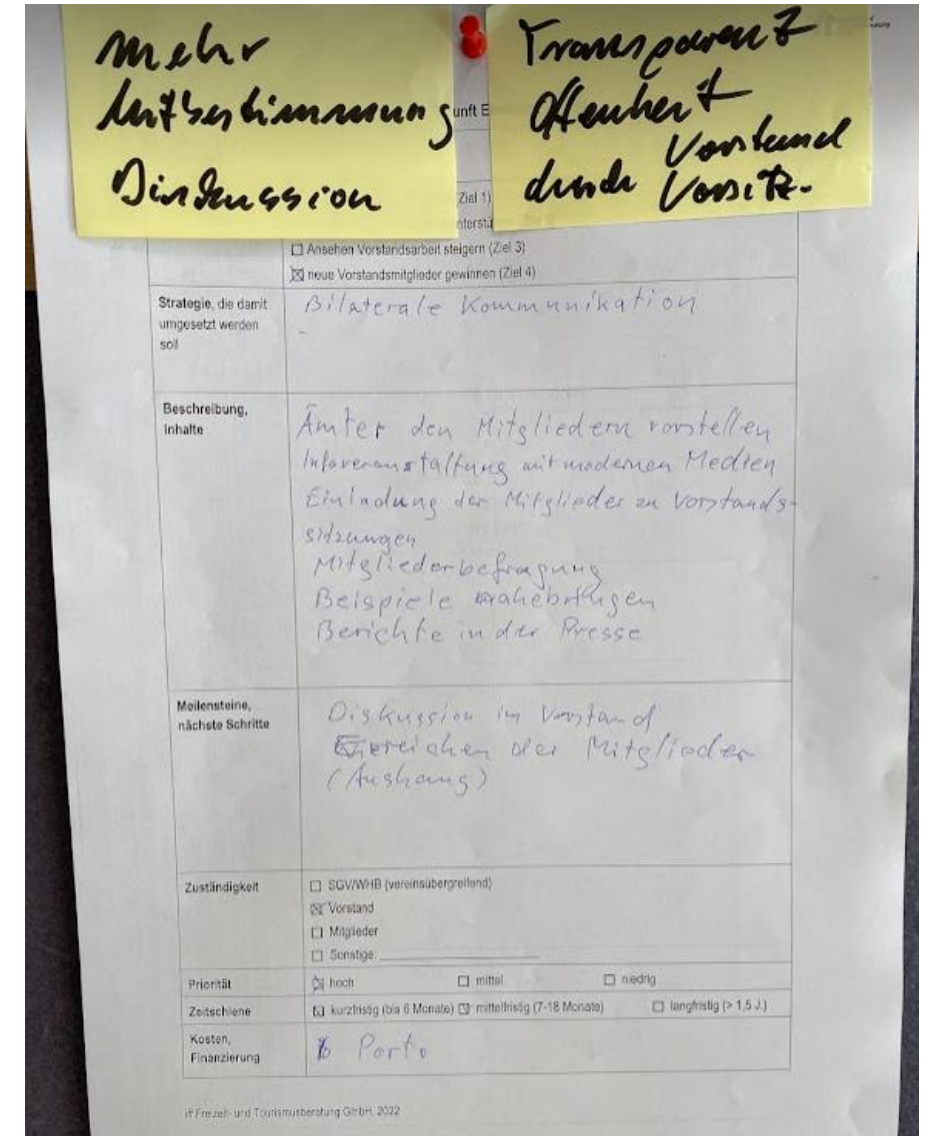 mehr
Mitbestimmung
Diskussion
Transparenz
Offenheit
durch Vorstand
Vorsitz.
unft E
Ziel 1)
nterstü
☐ Ansehen Vorstandsarbeit steigern (Ziel 3)
☒ neue Vorstandsmitglieder gewinnen (Ziel 4)
Strategie, die damit
umgesetzt werden
soll
Bilaterale Kommunikation
-
Beschreibung,
Inhalte
Ämter den Mitgliedern vorstellen
Infoveranstaltung mit modernen Medien
Einladung der Mitglieder zu Vorstands-
sitzungen
Mitgliederbefragung
Beispiele
Berichte in der Presse
Meilensteine,
nächste Schritte
Diskussion im Vorstand
Erreichen der Mitglieder
(Aushang)
Zuständigkeit
☐ SGV/WHB (vereinsübergreifend)
☒ Vorstand
☐ Mitglieder
☐ Sonstige:
Priorität
☒ hoch ☐ mittel ☐ niedrig
Zeitschiene
☒ kurzfristig (bis 6 Monate) ☒ mittelfristig (7-18 Monate) ☐ langfristig (> 1,5 J.)
Kosten,
Finanzierung
Porto
ift Freizeit- und Tourismusberatung GmbH, 2022